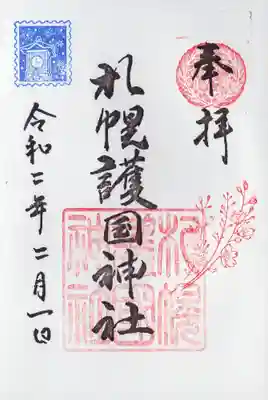 奉拝
札幌護国神社
令和二年二月一日
札幌護国神社